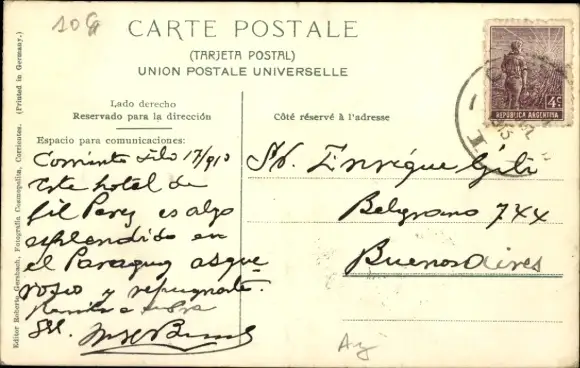 10 G
CARTE POSTALE
(TARJETA POSTAL)
UNION POSTALE UNIVERSELLE
Lado derecho
Reservado para la dirección
Côté réservé à l'adresse
4c
REPUBLICA ARGENTINA
Espacio para comunicaciones:
17/913
Este hotel de
Gil Perez es algo
esplendido en
el Paraguay asque
roso y repugnante.
Sr. Enrique Gili
Belgrano 744
Buenos Aires
Arg
Editor Roberto Gersbach, Fotografía Cosmopolita, Corrientes. (Printed in Germany.)